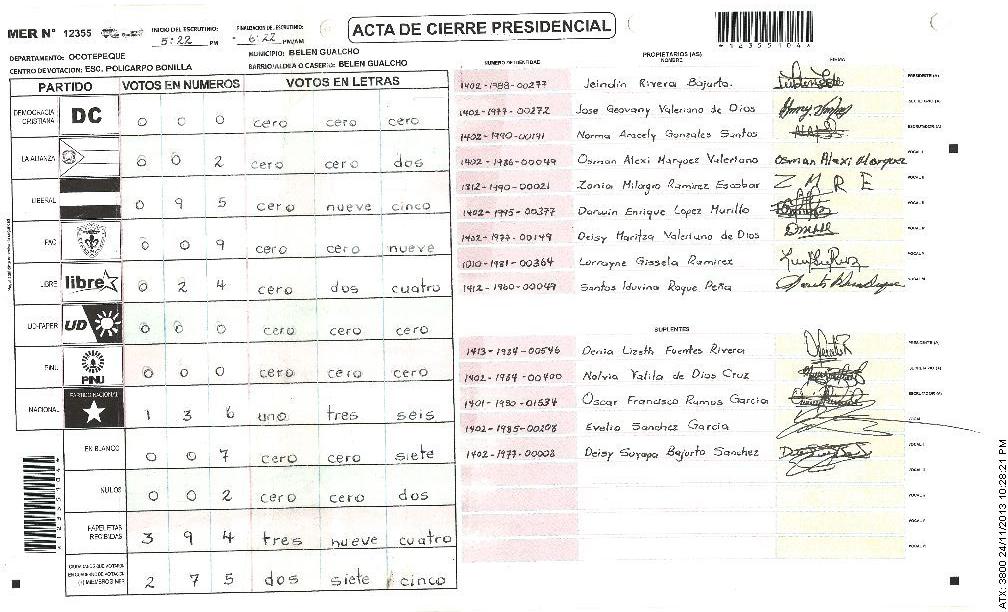 MER N° 12355
INICIO DEL ESCRUTINIO: 5:22 PM
FINALIZACION DE ESCRUTINIO: 6:22 PM/AM
ACTA DE CIERRE PRESIDENCIAL
*12355104*
DEPARTAMENTO: OCOTEPEQUE
MUNICIPIO: BELEN GUALCHO
CENTRO DE VOTACION: ESC. POLICARPO BONILLA
BARRIO/ALDEA O CASERIO: BELEN GUALCHO
PARTIDO VOTOS EN NUMEROS VOTOS EN LETRAS
DEMOCRACIA CRISTIANA DC 0 0 0 cero cero cero
LA ALIANZA 0 0 2 cero cero dos
LIBERAL 0 9 5 cero nueve cinco
PAC 0 0 9 cero cero nueve
LIBRE libre 0 2 4 cero dos cuatro
UD-FAPER UD 0 0 0 cero cero cero
PINU PINU 0 0 0 cero cero cero
NACIONAL PARTIDO NACIONAL 1 3 6 uno tres seis
EN BLANCO 0 0 7 cero cero siete
NULOS 0 0 2 cero cero dos
PAPELETAS RECIBIDAS 3 9 4 tres nueve cuatro
CIUDADANOS QUE VOTARON EN CUADERNO DE VOTACION (+) MIEMBROS MER 2 7 5 dos siete cinco
NUMERO DE IDENTIDAD PROPIETARIOS (AS) NOMBRE FIRMA
1402-1988-00277 Jeindin Rivera Bajurto. PRESIDENTE (A)
1402-1977-00272 Jose Geovany Valeriano de Dios SECRETARIO (A)
1402-1990-00191 Norma Aracely Gonzales Santos ESCRUTADOR (A)
1402-1986-00049 Osman Alexi Marquez Valeriano Osman Alexi Marquez VOCAL I
1312-1990-00021 Zonia Milagro Ramirez Escobar Z M R E VOCAL II
1402-1995-00377 Darwin Enrique Lopez Murillo
1402-1977-00149 Deisy Maritza Valeriano de Dios
1010-1981-00364 Lorrayne Gissela Ramirez
1412-1960-00049 Santos Iduvina Roque Peña
SUPLENTES
1413-1984-00546 Denia Lizeth Fuentes Rivera PRESIDENTE (A)
1402-1984-00400 Nolvia Yatila de Dios Cruz SECRETARIO (A)
1401-1980-01534 Oscar Francisco Ramos Garcia ESCRUTADOR (A)
1402-1985-00208 Evelio Sanchez Garcia
1402-1977-00008 Deisy Suyapa Bajurto Sanchez
ATX: 3800 24/11/2013 10:28:21 PM